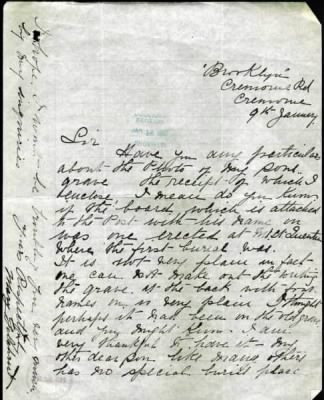 "Brooklyn"
Cremorne Rd
Cremorne
9th January
Sir
Have you any particular
about the Photo of my sons
grave the receipt of which I
I mean do you know
if the board which is attached
to post with his name on
was one erected at Mt St Quentin
where the first burial was.
It is not very plain in fact
one can not make out the writing
the grave at the back with
names on is very plain I thought
perhaps it has been on the old grave
and my might him. I am
very thankful to have it - my
other dear son like many others
has no special burial place
I hope I wont be troubling you too much
by my enquiries
Yours Respectfully